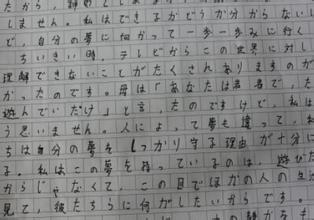 だから、
せん。私はできるかどうか分からない
で、自分の夢に向かって一歩一歩に行く
ちいさい時、テレビからこの世界に対し
理解できないことがたくさんありますのが
かったのです。母は「あなたは若者で、た
遊んでいだけ」と言ったのですけで、私は
う思いません。人によって夢も違って、私
ちは自分の夢をしっかり守る理由が十分に
る。私はこの夢を持っているのは、遊びた
からじゃなくて、この目でほかの人の生活
見て、彼たちらに何がしたいからです。